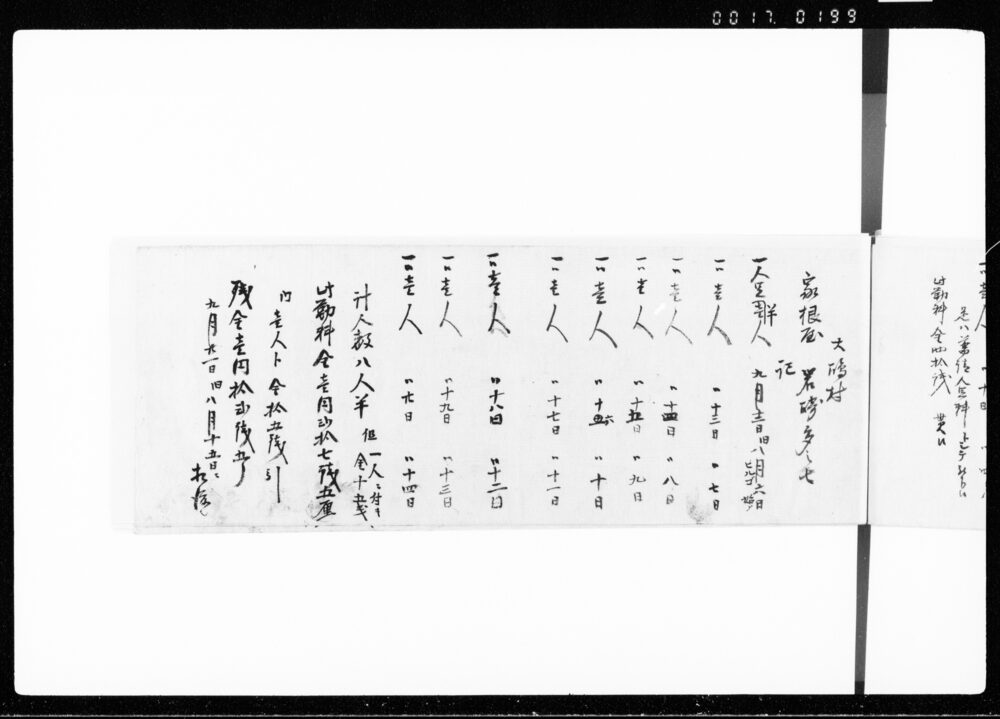 0017 0199
〃壱人 〃十日
此勤料金四拾銭 貰い
大嶋村
家根屋 岩崎多之七
記
一人足半人 九月十二日旧八月六日
一〃壱人 〃十三日 〃七日
一〃壱人 〃十四日 〃八日
一〃壱人 〃十五日 〃九日
一〃壱人 〃十六日 〃十日
一〃壱人 〃十七日 〃十一日
一〃壱人 〃十八日 〃十二日
一〃壱人 〃十九日 〃十三日
一〃壱人 〃廿日 〃十四日
計人数八人半 但一人ニ付金十五銭
此勤料金壱円弐拾七銭五厘
内壱人ト金拾五銭引
残金壱円拾弐銭五り
九月廿一日旧八月十五日ニ相済